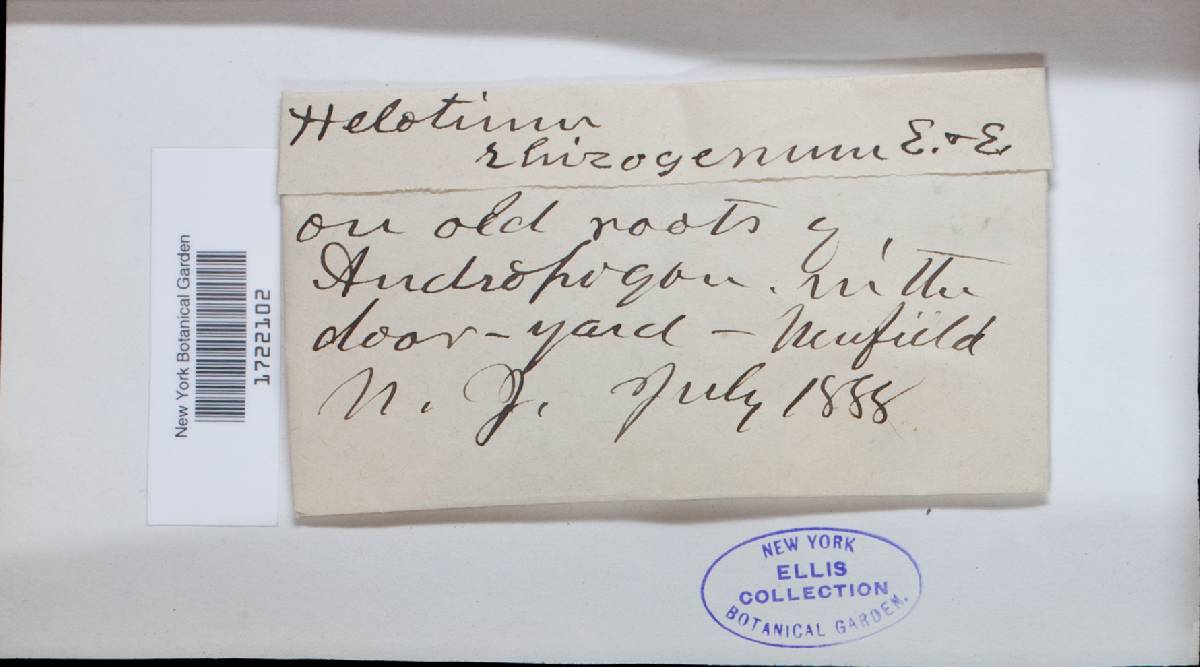 Helotium
rhizogenum E. & E.
on old roots of
Andropogon. in the
door-yard - Newfield
N. J. July 1888
New York Botanical Garden
1722102
NEW YORK
ELLIS
COLLECTION
BOTANICAL GARDEN.